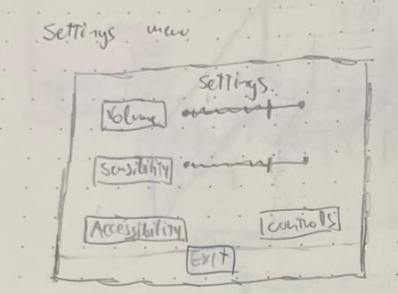 Settings menu
Settings
Volume
Sensibility
Accessibility
Controls
Exit